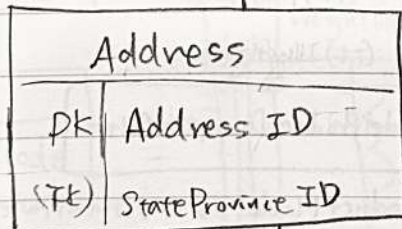 Address
PK Address ID
(FK) StateProvince ID